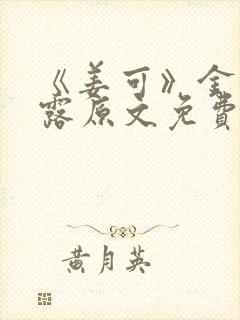 《姜可》金
露原文免费
黄月英